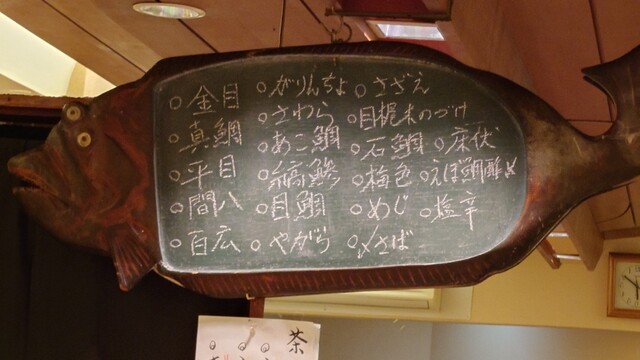 金目
真鯛
平目
間八
百広
がりんちょ
さわら
あこ鯛
縞鯵
目鯛
やがら
さざえ
目梶木のづけ
石鯛
床伏
梅色
えぼ鯛酢〆
めじ
塩辛
〆さば
茶